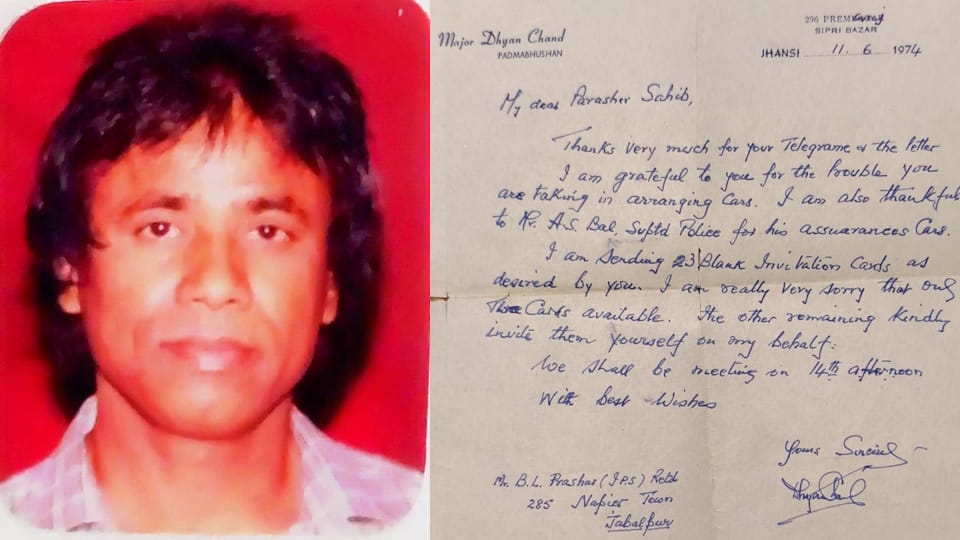 Major Dhyan Chand
PADMABHUSHAN
296 PREMGANJ
SIPRI BAZAR
JHANSI 11. 6 1974
My dear Parasher Sahib,
Thanks very much for your Telegrame & the letter
I am grateful to you for the trouble you
are taking in arranging Cars. I am also thankful
to Mr. A.S. Bal, Suptd Police for his assuarances Cars.
I am sending 23 Blank Invitation Cards as
desired by you. I am really very sorry that only
Cards available. The other remaining kindly
invite them yourself on my behalf.
We shall be meeting on 14th afternoon
With best wishes
Yours Sincerely
Dhyan Chand
Mr. B.L. Prashar (I.P.S) Retd
285 Napier Town
Jabalpur